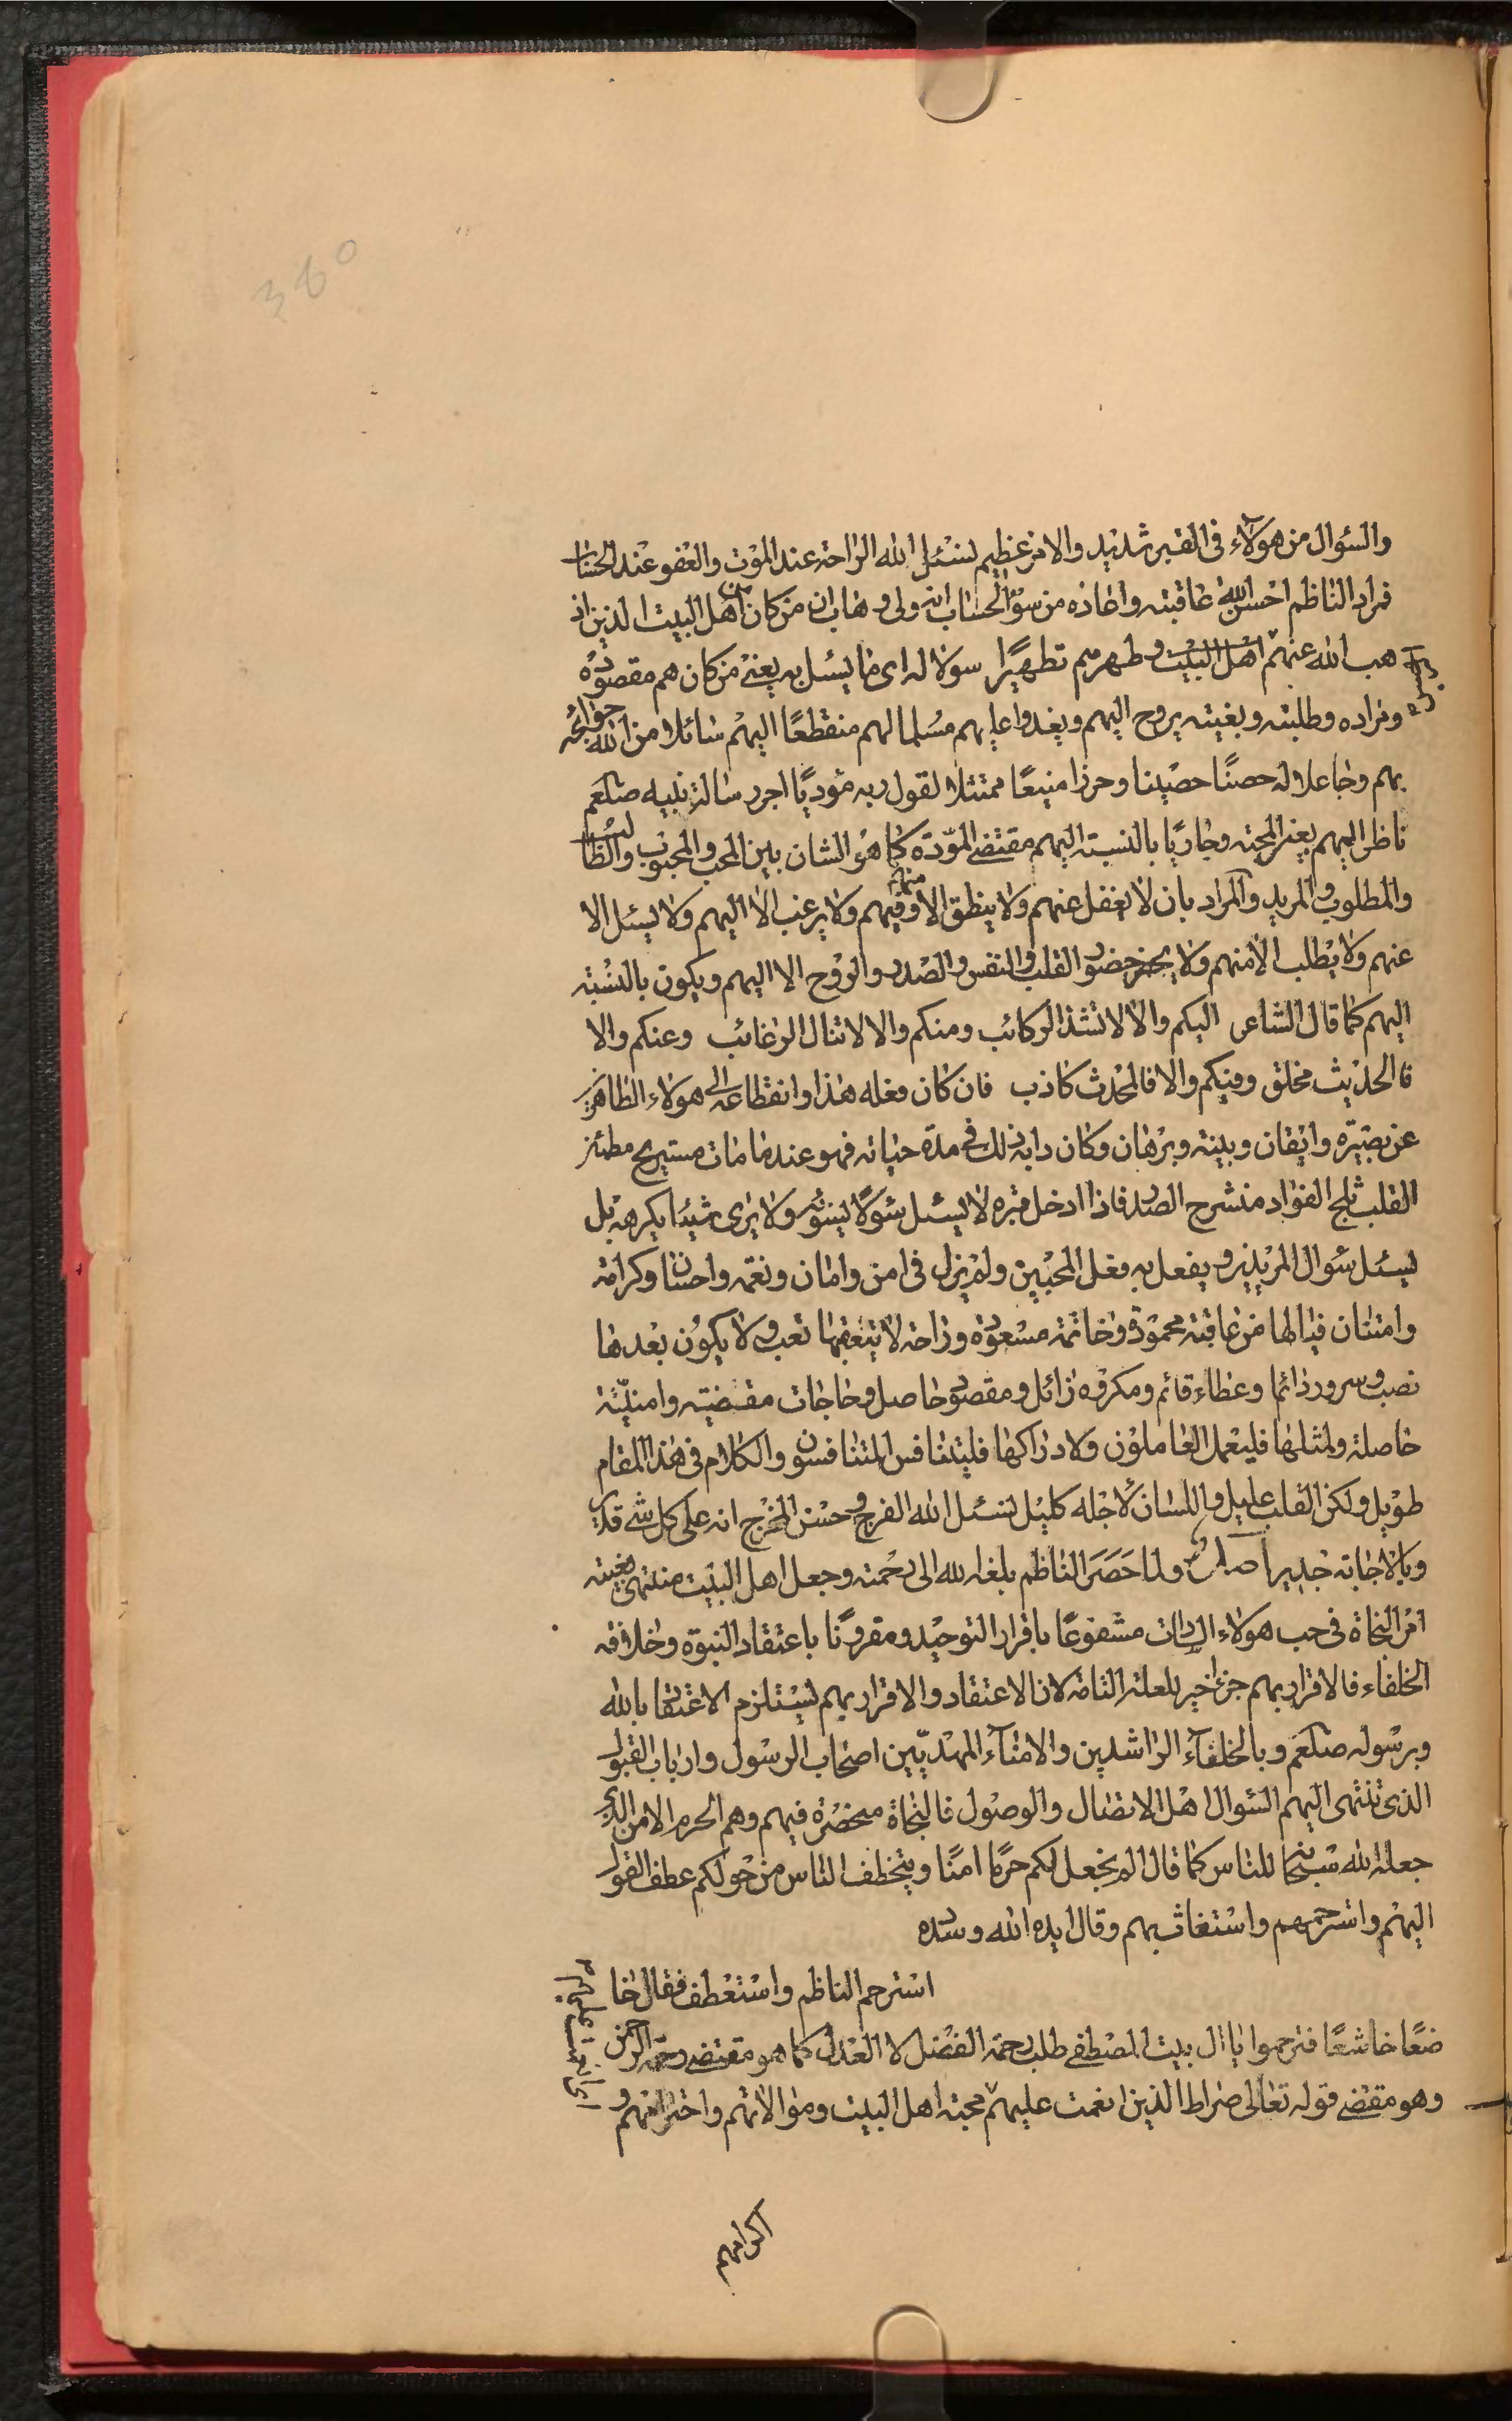 والسئوال من هولآء فى القبر شديد والامر عظيم لنسئل الله الراحة عند الموت والعفو عند الحساب
فمراد الناظم احسن الله عاقبته واعاذه من سؤ الحساب انه ولى وهاب ان من كان من اهل البيت الذين اذ
هب الله عنهم الرجس اهل البيت وطهرهم تطهيرًا سولا له اى ما يسئل به يعنى من كان هم مقصوده
ومراده وطلبته وبغيته يروح اليهم ويغدوا عليهم مسلما لهم منقطعًا اليهم سائلا من الله حوائجه
بهم وجاعلا له حصنًا حصينا وحرزا منيعًا ممتثلا لقول ربه مؤديًا اجر رسالة نبيه صلعم
ناظرا اليهم بعين المحبة وجاريًا بالنسبة اليهم مقتضى المودّة كما هو الشان بين المحب والمحبوب والطالب
والمطلوب والمريد والمراد بان لا يغفل عنهم ولا ينطق الا منهم وفيهم ولا يرغب الا اليهم ولا يسئل الا
عنهم ولا يطلب الا منهم ولا يحضر حضور القلب والنفس والصدر والروح الا اليهم ويكون بالنسبة
اليهم كما قال الشاعر اليكم والا لا تشد الركائب ومنكم والا لا تنال الرغائب وعنكم والا
فالحديث مخلق وفيكم والا فالمحدث كاذب فان كان فعله هذا وانقطاعه الى هولاء الطاهرين
عن بصيرة وايقان وبينة وبرهان وكان دابه ذلك فى مدة حياته فهو عندما مات مستريح مطمئن
القلب ثلج الفؤاد منشرح الصدر فاذا ادخل قبره لا يسئل سئوالا يسؤه ولا يرى شيئا يكرهه بل
يسئل سئوال المريدين ويفعل به فعل المحبين ولم يزل فى امن وامان ونعمة واحسان وكرامة
وامتنان فيا لها من عاقبة محمودة وخاتمة مسعودة وراحة لا يتعقبها تعب ولا يكون بعدها
نصب وسرور دائما وعطاء قائم ومكروه زائل ومقصود حاصل وحاجات مقضية وامنيّة
حاصلة ولمثلها فليعمل العاملون ولادراكها فليتنافس المتنافسون والكلام فى هذا المقام
طويل ولكن القلب عليل واللسان لاجله كليل لنسئل الله الفرج وحسن المخرج انه على كل شئ قدير
وبالاجابة جدير اصل ولما حَصَرَ الناظم بلغه الله الى رحمته وجعل اهل البيت منتهى بغيته
امر النجاة فى حب هولاء السادات مشفوعًا باقرار التوحيد ومقرونًا باعتقاد النبوة وخلافة
الخلفاء فالاقرار بهم جزء اخير للعلة التامة لان الاعتقاد والاقرار بهم يستلزم الاعتقاد بالله
وبرسوله صلعم وبالخلفآء الراشدين والامنآء المهديّين اصحاب الرسول وارباب القبول
الذى تنتهى اليهم السئوال اهل الاتصال والوصول فالنجاة منحصرة فيهم وهم الحرم الامن الذى
جعله الله سبحانه للناس كما قال اولم نجعل لكم حرمًا امنًا ويتخطف الناس من حولكم عطف القول
اليهم واسترحمهم واستغاث بهم وقال ايده الله وسدده
استرحم الناظم واستعطف فقال خا
ضعًا خاشعًا فترحموا يا ال بيت المصطفى طلب رحمة الفضل لا العدل كما هو مقتضى رحمة الرحمن
وهو مقتضى قوله تعالى صراط الذين انعمت عليهم محبة اهل البيت وموالاتهم واحترامهم و
اكرامهم